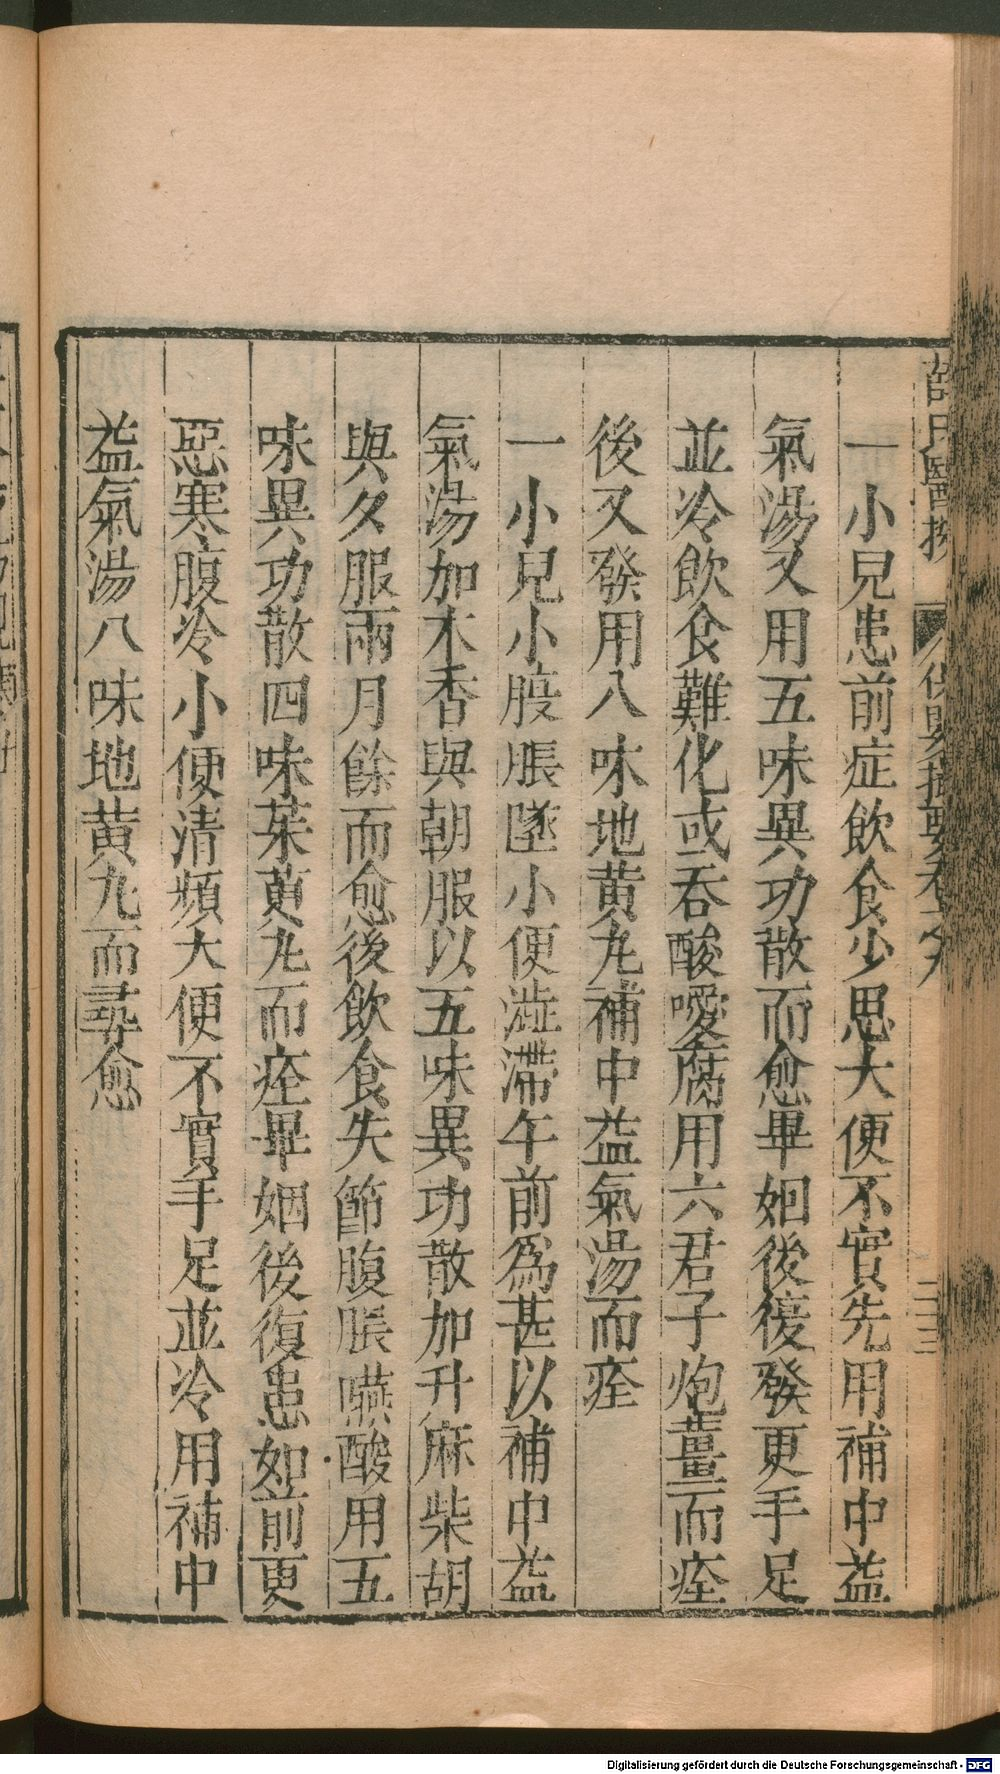 一小兒患前症飲食少思大便不實先用補中益
氣湯又用五味異功散而愈畢姻後復發更手足
並冷飲食難化或吞酸噯腐用六君子炮薑而痊
後又發用八味地黃丸補中益氣湯而痊
一小兒小腹脹墜小便澁滯午前爲甚以補中益
氣湯加木香與朝服以五味異功散加升麻柴胡
與夕服兩月餘而愈後飲食失節腹脹嚥酸用五
味異功散四味茱萸丸而痊畢姻後復患如前更
惡寒腹冷小便清頻大便不實手足並冷用補中
益氣湯八味地黃丸而尋愈
二十三
Digitalisierung gefördert durch die Deutsche Forschungsgemeinschaft - DFG